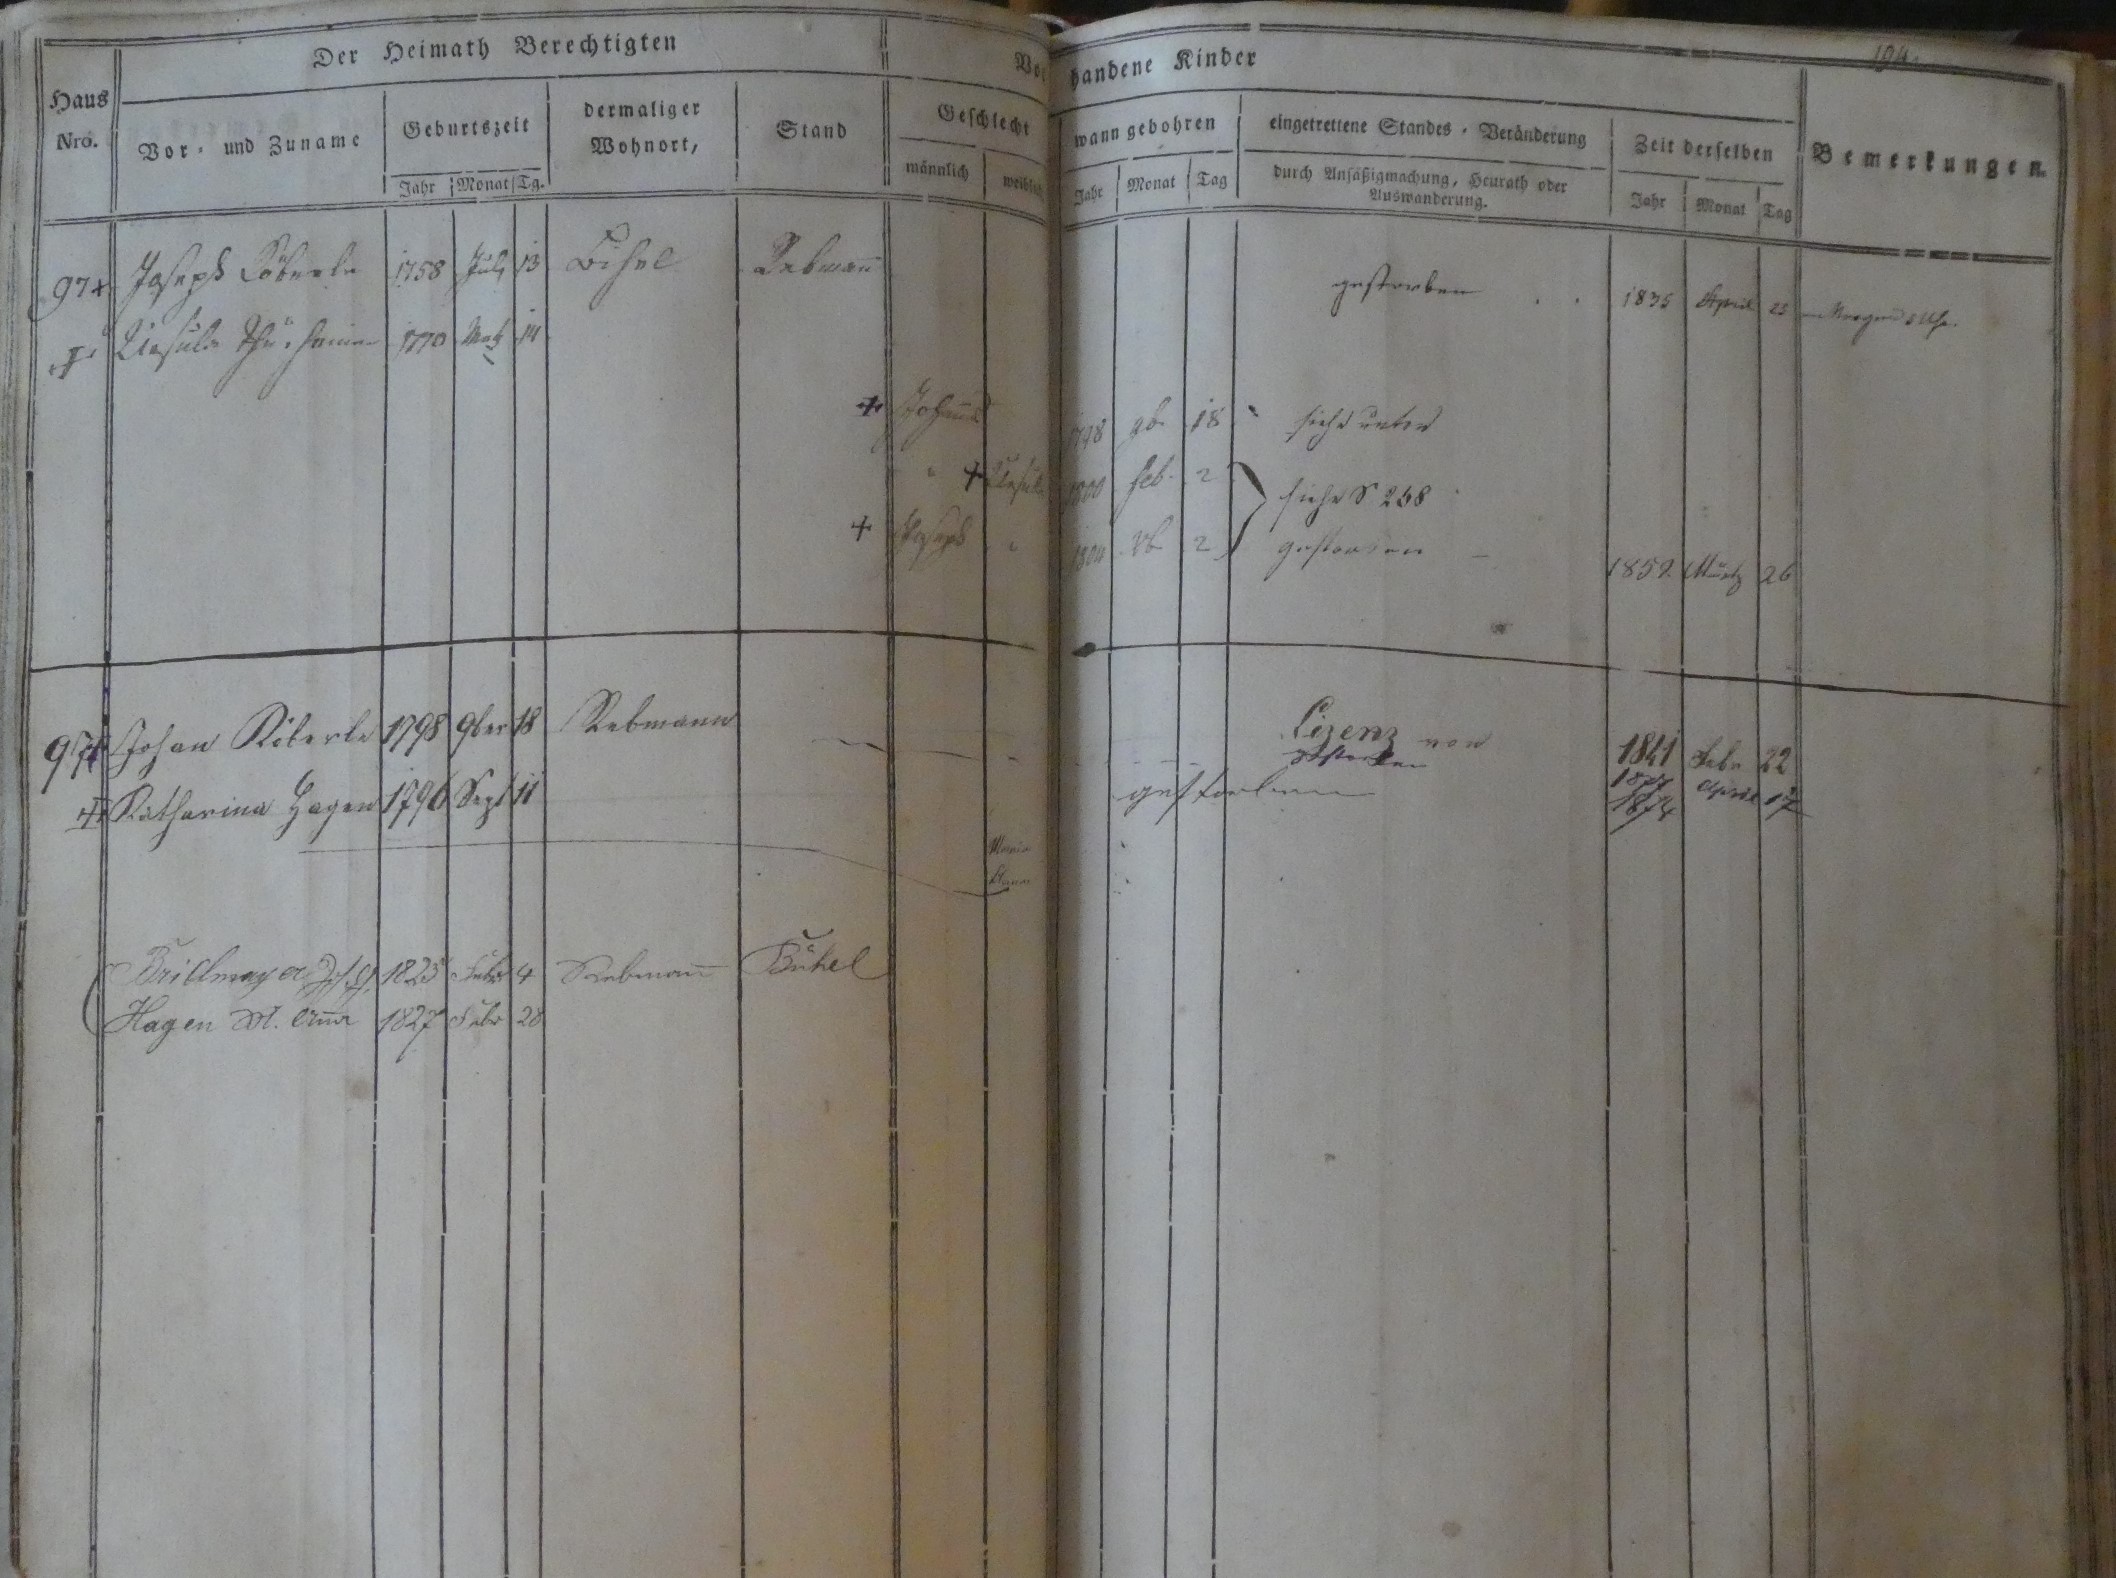 194.
Der Heimath Berechtigten
Vor handene Kinder
Haus Nro.
Vor- und Zuname
Geburtszeit
Jahr Monat Tg.
dermaliger Wohnort,
Stand
Geschlecht
männlich weiblich
wann gebohren
Jahr Monat Tag
eingetrettene Standes-Veränderung
durch Ansäßigmachung, Heurath oder
Auswanderung.
Zeit derselben
Jahr Monat Tag
Bemerkungen.
97 + Joseph Köberle 1758 July 13 Bihel Rebmann gestorben 1835 April 25
+ Ursula 1770 14
+ Johann 1798 9b 18 siehe unten
+ Ursula 1800 Feb. 2 siehe S 258
+ Joseph 1804 2 gestorben 1859 März 26
97 + Johan Köberle 1798 9ber 18 Rebmann Lizenz von 1841 Febr 22
gestorben 1877 April 17
+ Katharina Hagen 1796 Sept 11 gestorben 1874
Maria
Anna
Brillmayer Jos. 1825 Febr 4 Rebmann Bühel
Hagen M. Anna 1827 Febr 28